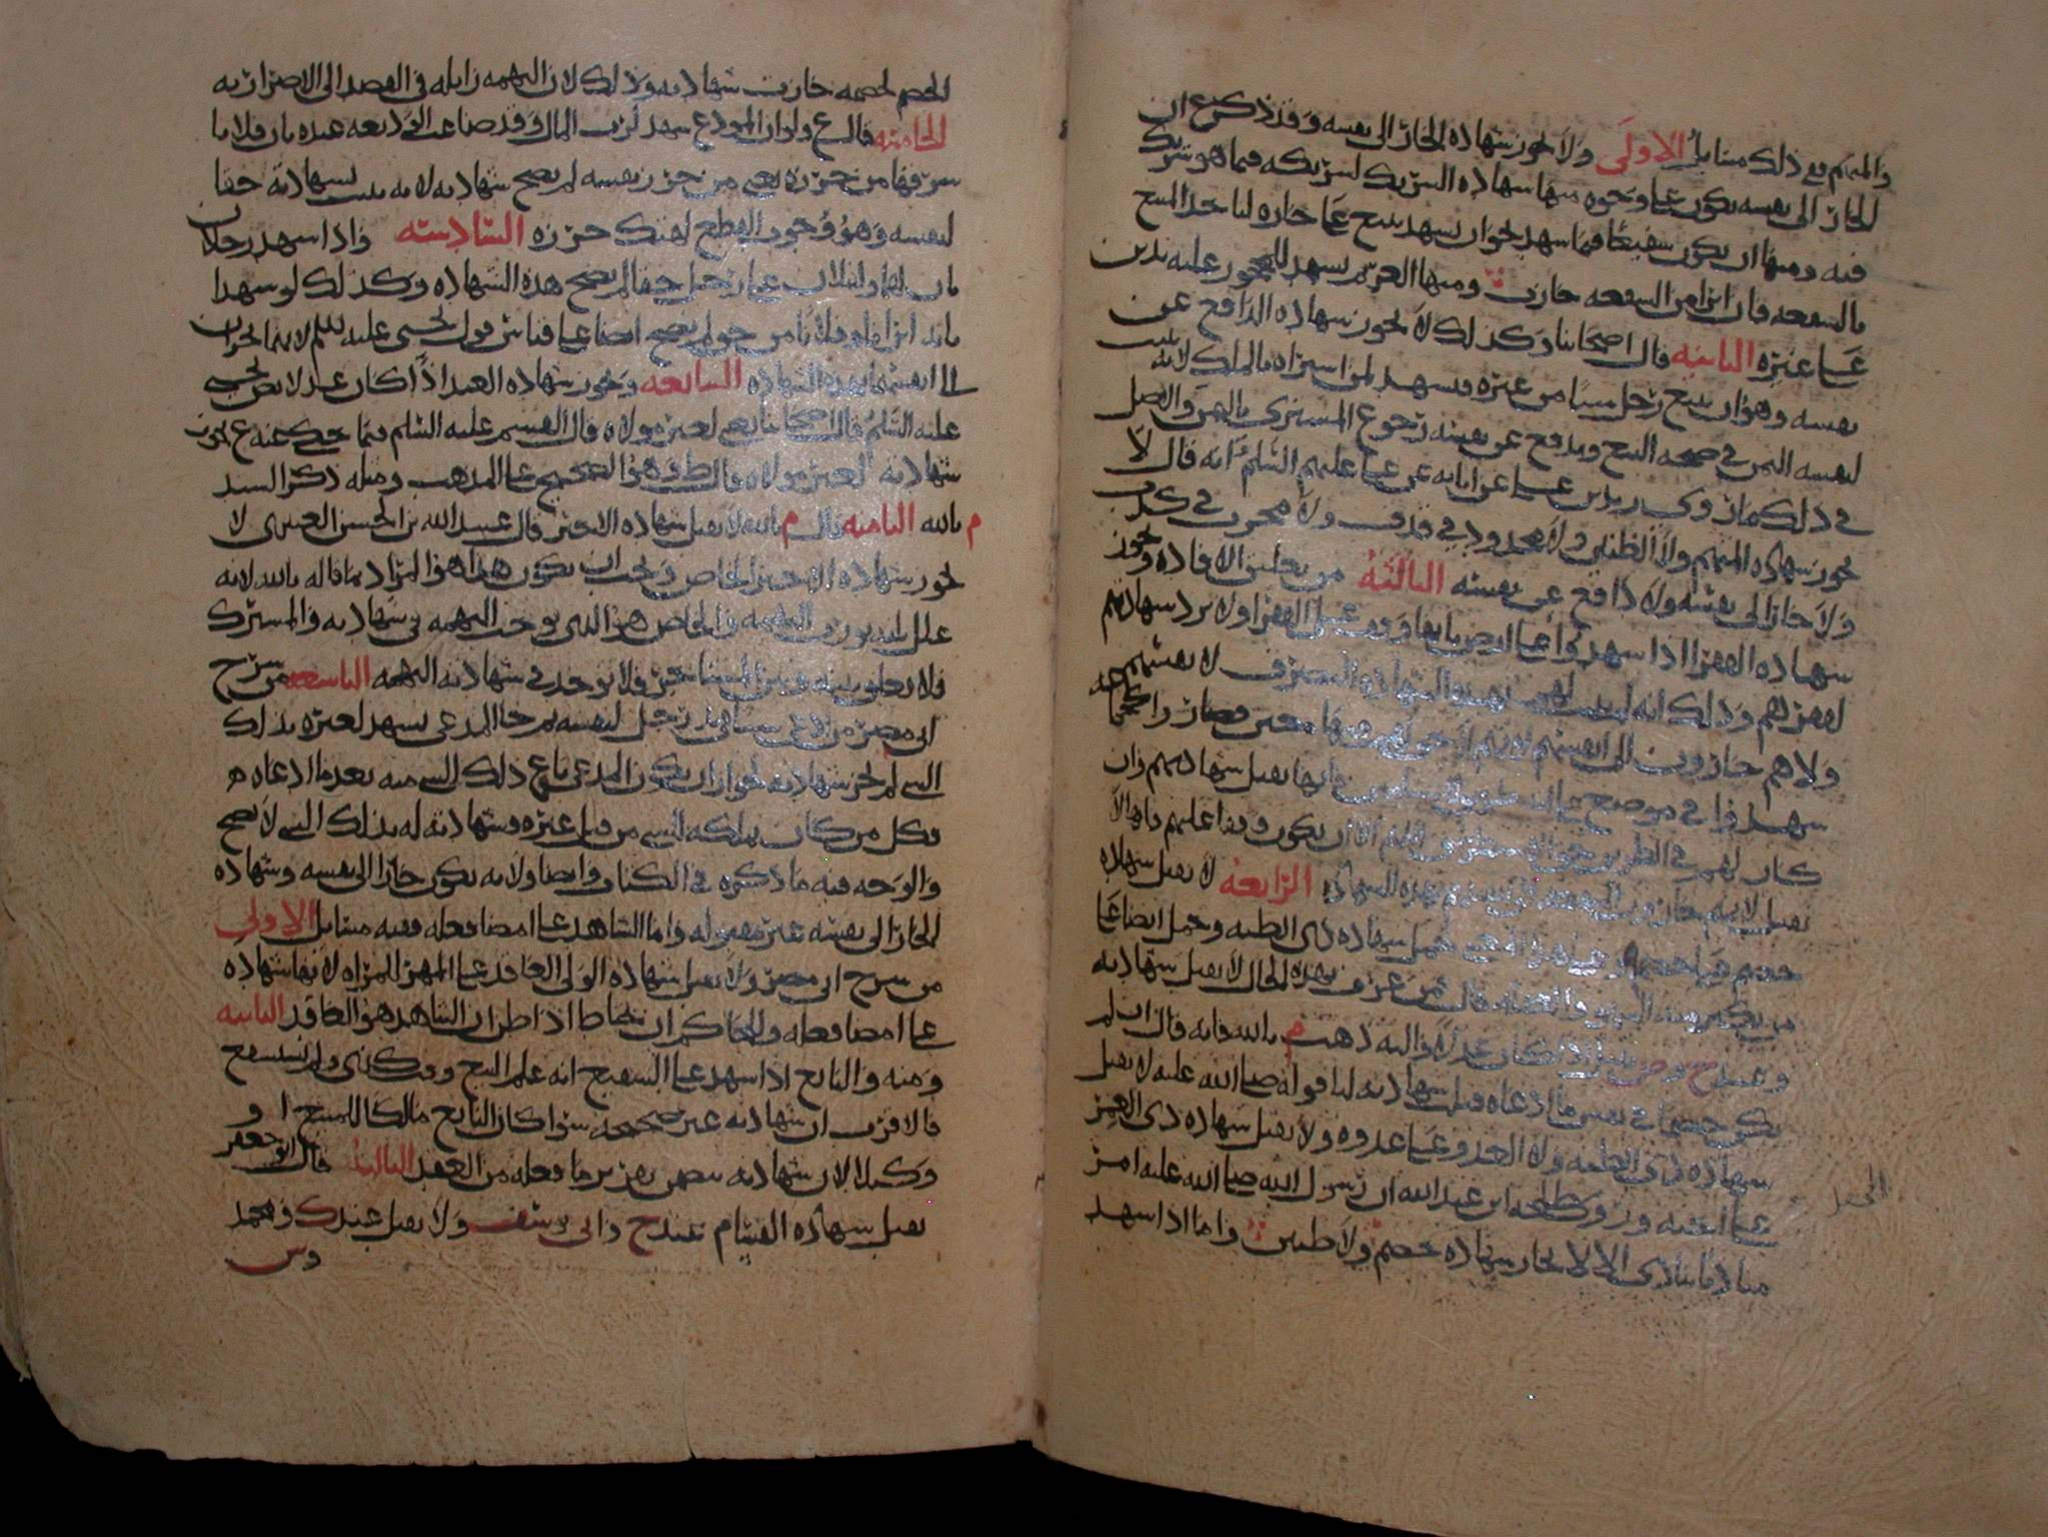 والمتهم ففي ذلك مسايل الاولى ولا تجوز شهاده الجار الى نفسه وقد ذكر ع ان
الجار الى نفسه يكون على وجوه منها شهاده الشريك لشريكه فيما هو شريك
فيه ومنها ان يكون شفيعا فيما شهد نحو ان يشهد ببيع على جاره لياخذ المبيع
بالشفعه فان ابرا من الشفعه جازت ومنها الغريم يشهد للمحجور عليه بدين
على غيره الثانيه قال اصحابنا وكذلك لا تجوز شهاده الدافع عن
نفسه وهو ان يبيع رجل شيا من غيره فيشهد لمن اشتراه بالملك لانه يثبت
لنفسه الثمن في صحه البيع ويدفع عن نفسه رجوع المشتري بالثمن والاصل
في ذلك ما روى زيد بن علي عن ابايه عن علي عليهم السلم انه قال لا
تجوز شهاده المتهم ولا الظنين ولا محدود في قذف ولا مجرب في كذب
ولا جار الى نفسه ولا دافع عن نفسه الثالثه من تعليق الافاده وتجوز
شهاده الفقرا اذا شهدوا على
لفقرهم وذلك انه لم يثبت لهم بهذه الشهاده التصرف لانفسهم
ولا هم جارون الى انفسهم لانهم لا حق لهم
شهدوا في موضع على انه طريق للمسلمين فانها تقبل شهادتهم وان
كان لهم في الطريق حق الاستطراق اللهم الا ان يكون وقفا عليهم باهلا لا
تقبل لانهم جارون النفع الى انفسهم بهذه الشهاده الرابعه لا تقبل شهاده
خصم على خصمه شهاده ذي الظنه وحمل ايضا على
من يكثر منه السهو والغفله قال فمن عرف بهذه الحال لا تقبل شهادته
وعند ح وص تقبل اذا كان عدلا واليه ذهب م بالله فانه قال ان لم
يكن خصما في نفس ما ادعاه قبلت شهادته لنا قوله صلى الله عليه لا تقبل
شهاده ذي الظنه ولا العدو على عدوه ولا تقبل شهاده ذي الغمر
على اخيه وروى طلحه ابن عبد الله ان رسول الله صلى الله عليه امر
مناديا ينادي الا لا تجاز شهاده خصم ولا ظنين واما اذا شهد
الخصم لخصمه جازت شهادته وذلك لان التهمه زايله في القصد الى الاضرار به
الخامسه قال ع ولو ان المودع شهد لرب المال وقد ضاعت الوديعه عنده بان فلانا
سرقها من حرزه يعني من حرز نفسه لم تصح شهادته لانه يثبت بشهادته حقا
لنفسه وهو وجوب القطع لهتك حرزه السادسه واذا شهد رجلان
بان لهما ولفلان على رجل حقا لم تصح هذه الشهاده وكذلك لو شهدا
بانه ابراهما وفلانا من حق لم يصح ايضا على قياس قول يحيى عليه السلم لانهما يجران
الى انفسهما بهذه الشهاده السابعه وتجوز شهاده العبد اذا كان عدلا نص يحيى
عليه السلم قال اصحابنا يعني لغير مولاه قال القسم عليه السلم فيما حكى عنه ع تجوز
شهادته لغير مولاه قال ط وهو الصحيح على المذهب ومثله ذكر السيد
م بالله الثامنه قال م بالله لا تقبل شهاده الاجير قال عبيد الله بن الحسن العنبري لا
تجوز شهاده الاجير الخاص ويجب ان يكون هذا هو المراد بما قاله م بالله لانه
علل بانه يورث التهمه والخاص هو الذي يوجب التهمه في شهادته والمشترك
فلا تعلق بينه وبين المستاجر فلا توجد في شهادته التهمه التاسعه من شرح
ابي مضر من ادعى شيا في يد رجل لنفسه ثم جا المدعي يشهد لغيره بذلك
الشي لم تجز شهادته لجواز ان يكون المدعي باع ذلك الشي منه بعد ما ادعاه
وكل من كان يملكه الشي من قبل غيره وشهادته له بذلك الشي لا تصح
والوجه فيه ما ذكره في الكتاب وايضا ولانه يكون جارا الى نفسه وشهاده
الجار الى نفسه غير مقبوله واما الشاهد على امضا فعله ففيه مسايل الاولى
من شرح ابي مضر ولا تقبل شهاده الولي العاقد على المهر للمراه لانها شهاده
على امضا فعله وللحاكم ان يحتاط اذا ظن ان الشاهد هو العاقد الثانيه
ومنه والبايع اذا شهد على الشفيع انه علم البيع ولم يستشفع
فالاقرب ان شهادته غير صحيحه سوا كان البايع مالكا للمبيع او
وكيلا لان شهادته تتضمن تقرير ما فعله من العقد الثالثه قال ابو جعفر
تقبل شهاده القسام عند ح وابي يوسف ولا تقبل عند ك ومحمد
وش